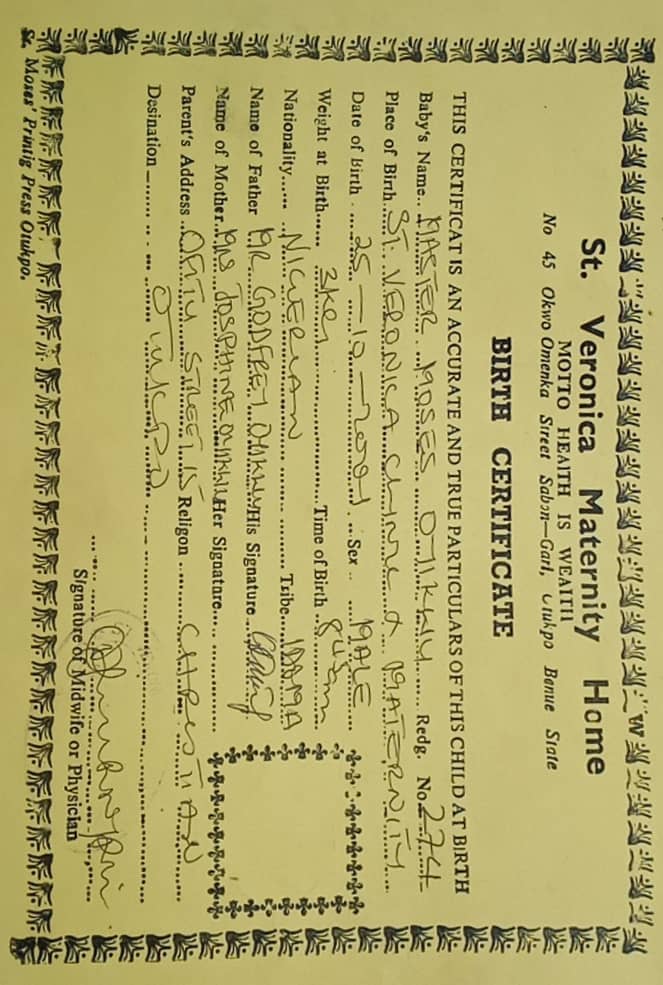 St. Veronica Maternity Home
MOTTO HEAITH IS WEAITH
No 45 Okwo Omenka Street Sabon—Gari, Otukpo Benue State
BIRTH CERTIFICATE
THIS CERTIFICAT IS AN ACCURATE AND TRUE PARTICULARS OF THIS CHILD AT BIRTH
Baby's Name.. MASTER MOSES OJIKWU Redg. No 274
Place of Birth.. ST. VERONICA CLINIC & MATERNITY
Date of Birth . 25-10-2001 Sex .. MALE
Weight at Birth 3kg Time of Birth
Nationality NIGERIAN Tribe. IDOMA
Name of Father MR GODFREY OJIKWU His Signature
Name of Mother MRS JOSPHINE OJIKWU Her Signature
Parent's Address STREET 15 Religon CHRISTIAN
OTUKPO
Desination
Signature of Midwife or Physician
St. Moses' Printig Press Otukpo.